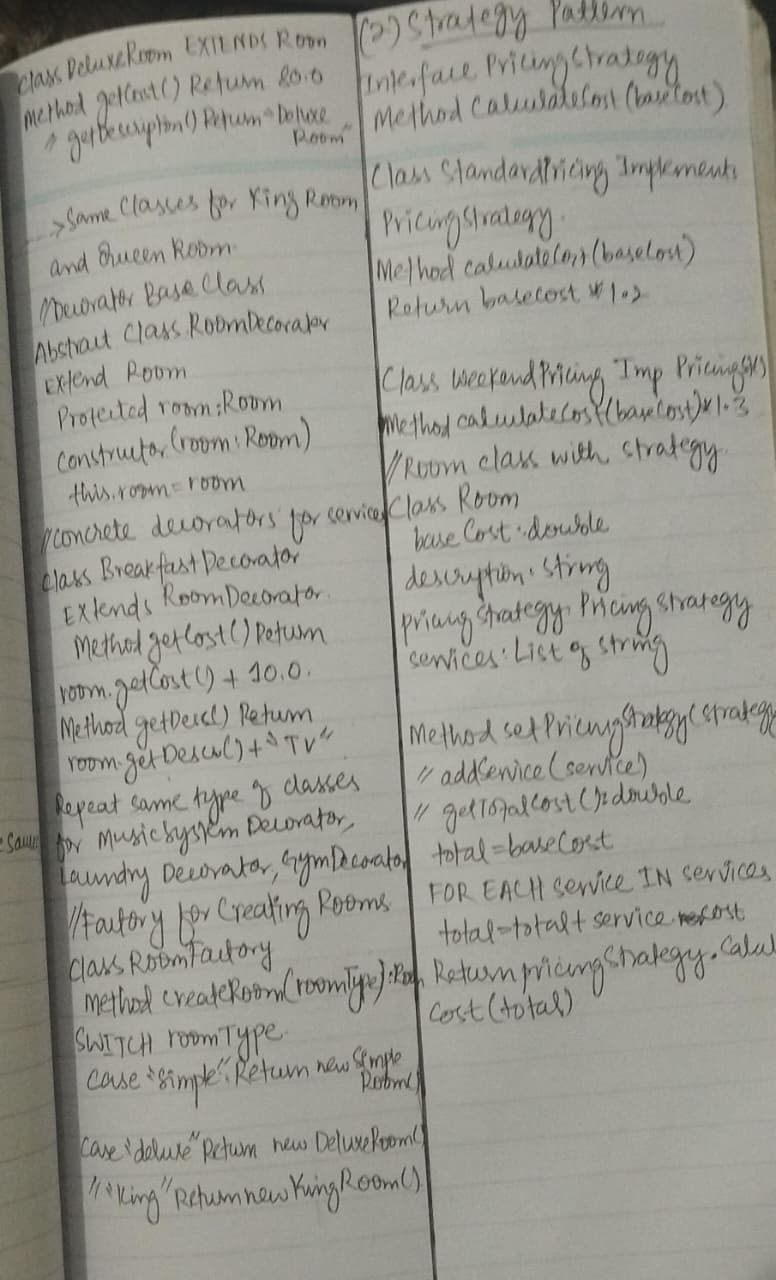 Class DeluxeRoom EXTENDS Room
Method getCost() Return 80.0
" getDescription() Return "Deluxe
Room"
> Same Classes for King Room
and Queen Room
//Decorator Base Class
Abstract Class RoomDecorator
Extend Room
Protected room: Room
Constructor (room: Room)
this.room = room
//concrete decorators for services
Class BreakfastDecorator
Extends RoomDecorator
Method getCost() Return
room.getCost() + 10.0.
Method getDesc() Return
room.getDesc() + "TV"
Repeat same type of classes
for MusicSystem Decorator,
Laundry Decorator, GymDecorator
//Factory for Creating Rooms
Class RoomFactory
Method createRoom(roomType): Room
SWITCH roomType
Case "Simple": Return new Simple
Room()
Case "deluxe" Return new DeluxeRoom()
" "King" Return new KingRoom()
(2) Strategy Pattern
Interface PricingStrategy
Method CalculateCost (baseCost)
Class StandardPricing Implements
PricingStrategy.
Method calculateCost (baseCost)
Return basecost * 1.2
Class WeekendPricing Imp Pricing
Method calculateCost (baseCost) * 1.3
//Room class with strategy
Class Room
baseCost: double
description: string
pricingStrategy: PricingStrategy
services: List of string
Method setPricingStrategy (strategy
" addService (service)
" getTotalCost (): double
total = baseCost
FOR EACH service IN services
total = total + service cost
Return pricingStrategy. Calcul
Cost (total)